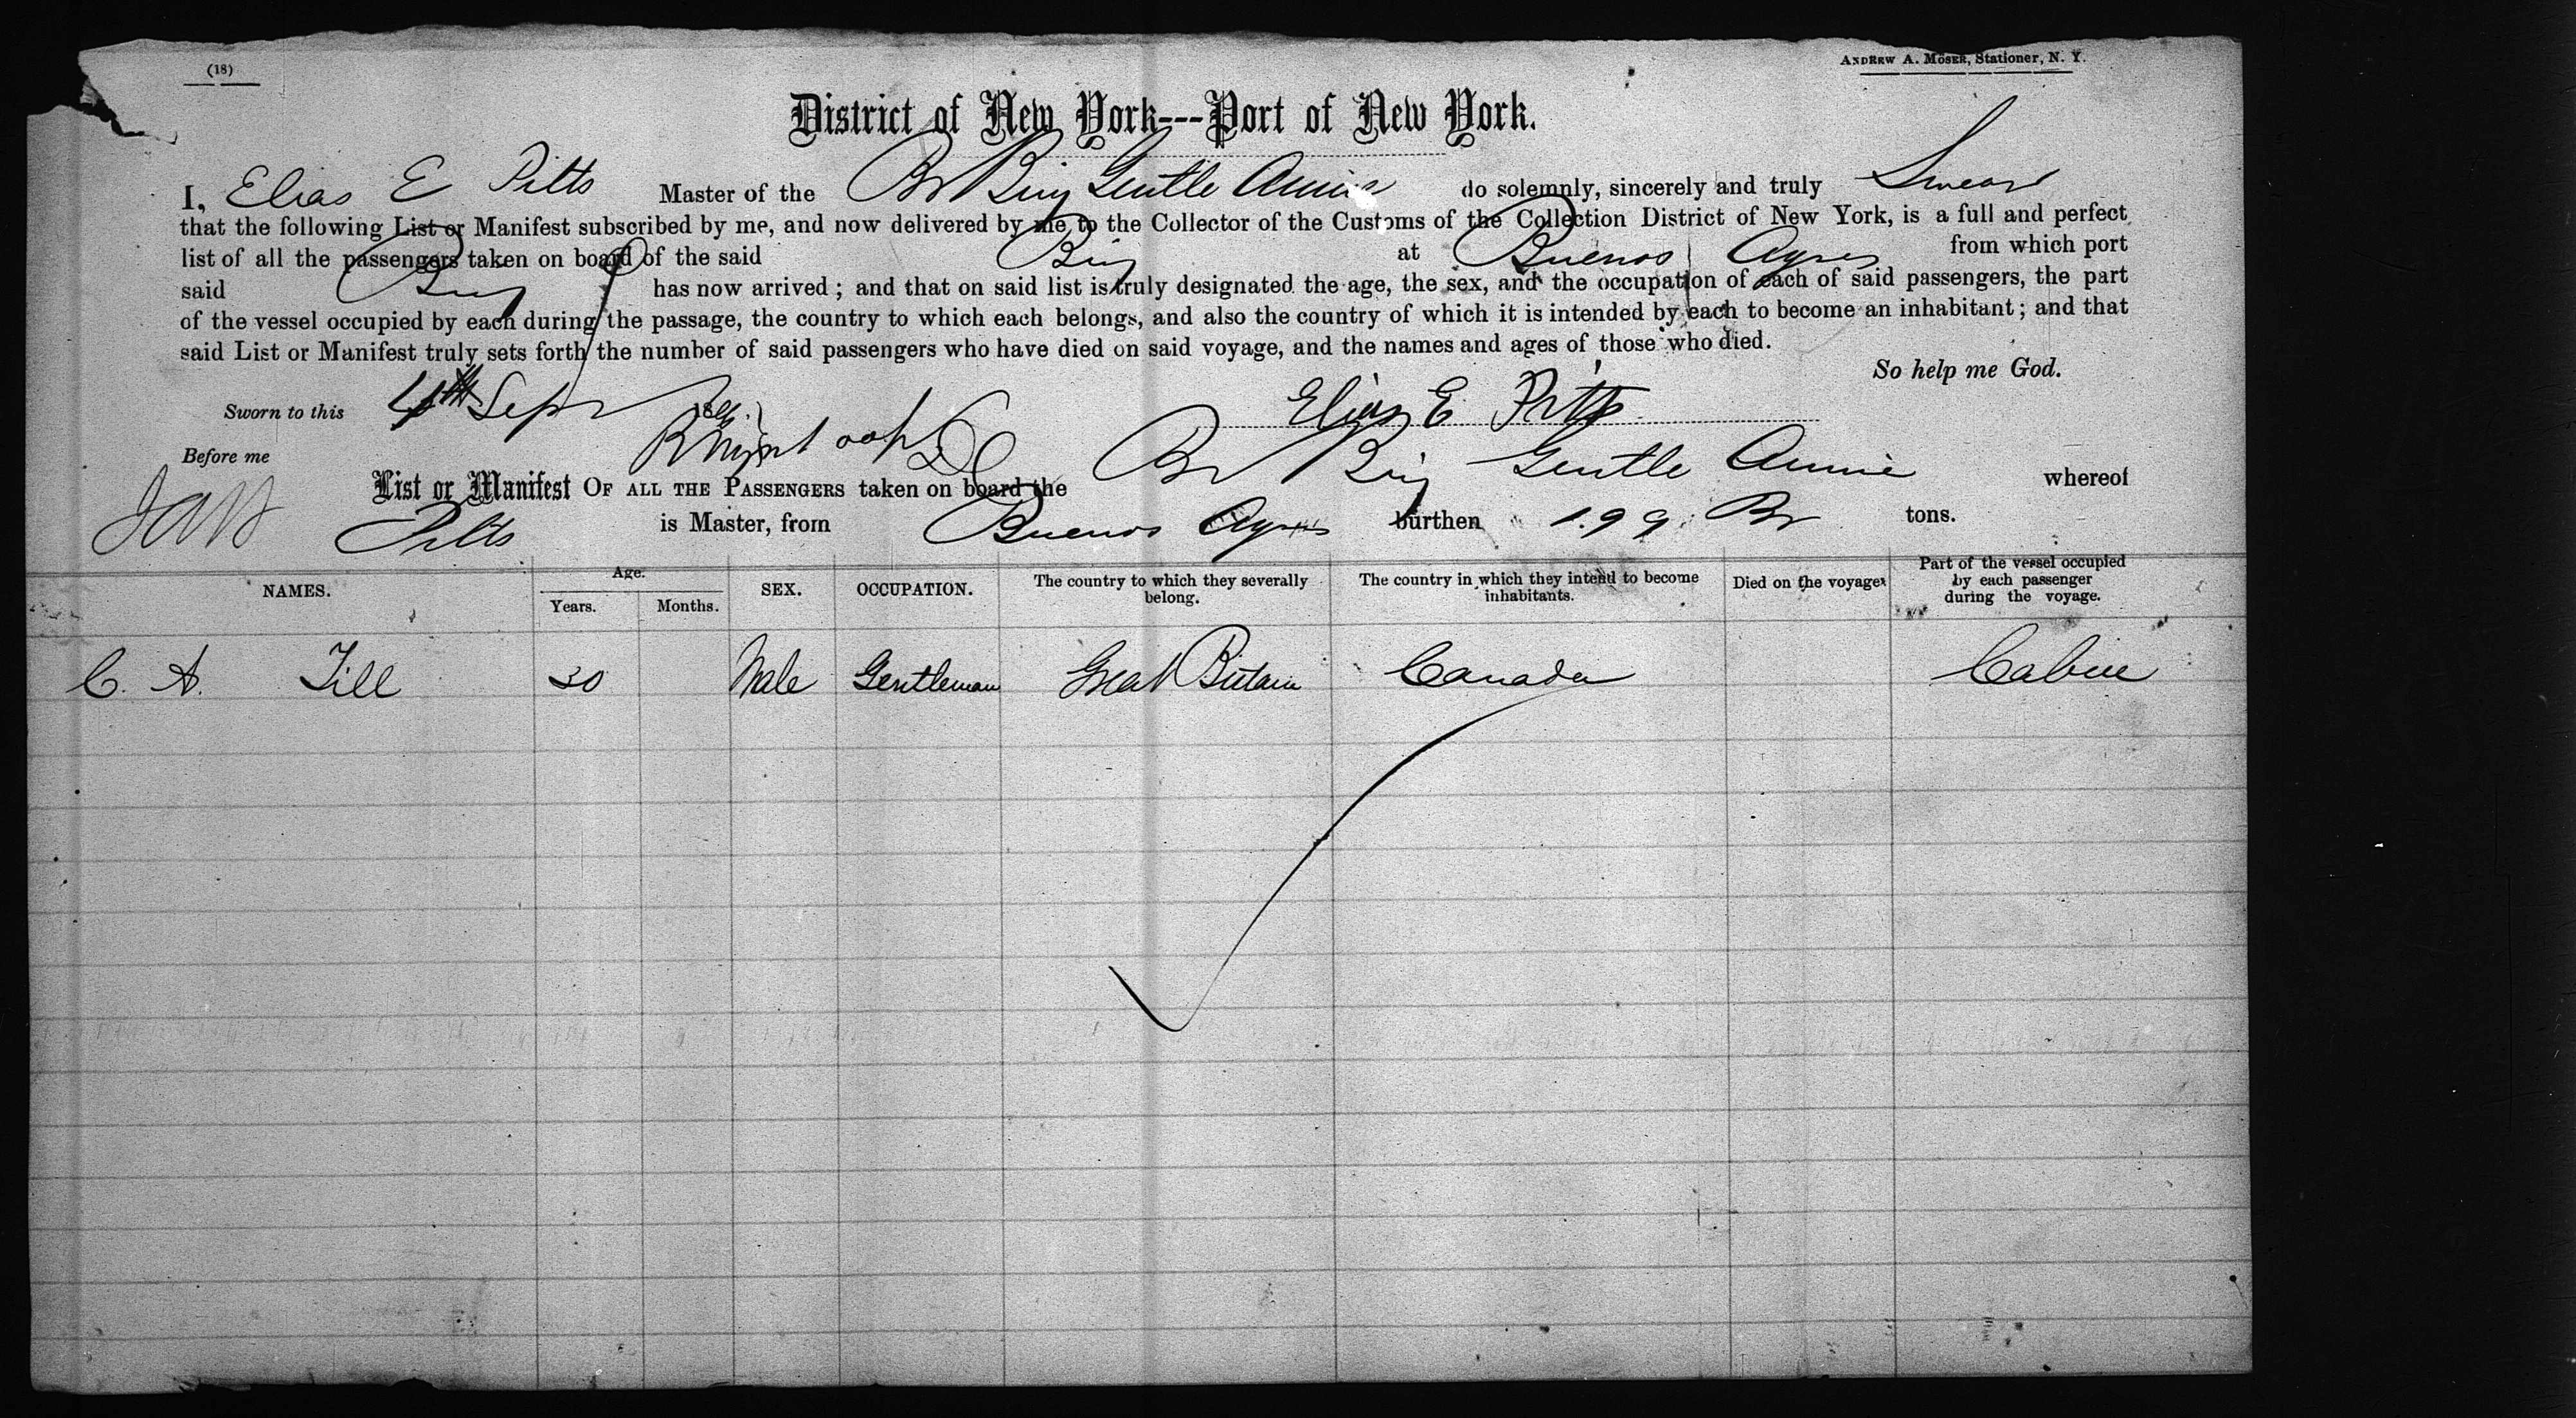 (18)
ANDREW A. MOSER, Stationer, N. Y.
District of New York---Port of New York.
I, Elias E Pitts Master of the Br Brig Gentle Annie do solemnly, sincerely and truly Swear
that the following List or Manifest subscribed by me, and now delivered by me to the Collector of the Customs of the Collection District of New York, is a full and perfect
list of all the passengers taken on board of the said Brig at Buenos Ayres from which port
said Brig has now arrived; and that on said list is truly designated the age, the sex, and the occupation of each of said passengers, the part
of the vessel occupied by each during the passage, the country to which each belongs, and also the country of which it is intended by each to become an inhabitant; and that
said List or Manifest truly sets forth the number of said passengers who have died on said voyage, and the names and ages of those who died.
So help me God.
Sworn to this 4th Sepr Elias E Pitts
Before me
List or Manifest OF ALL THE PASSENGERS taken on board the Br Brig Gentle Annie whereof
Pitts is Master, from Buenos Ayres burthen 199 Br tons.
NAMES. Age. Years. Months. SEX. OCCUPATION. The country to which they severally belong. The country in which they intend to become inhabitants. Died on the voyage. Part of the vessel occupied by each passenger during the voyage.
C. A. Till 30 Male Gentleman Great Britain Canada Cabin